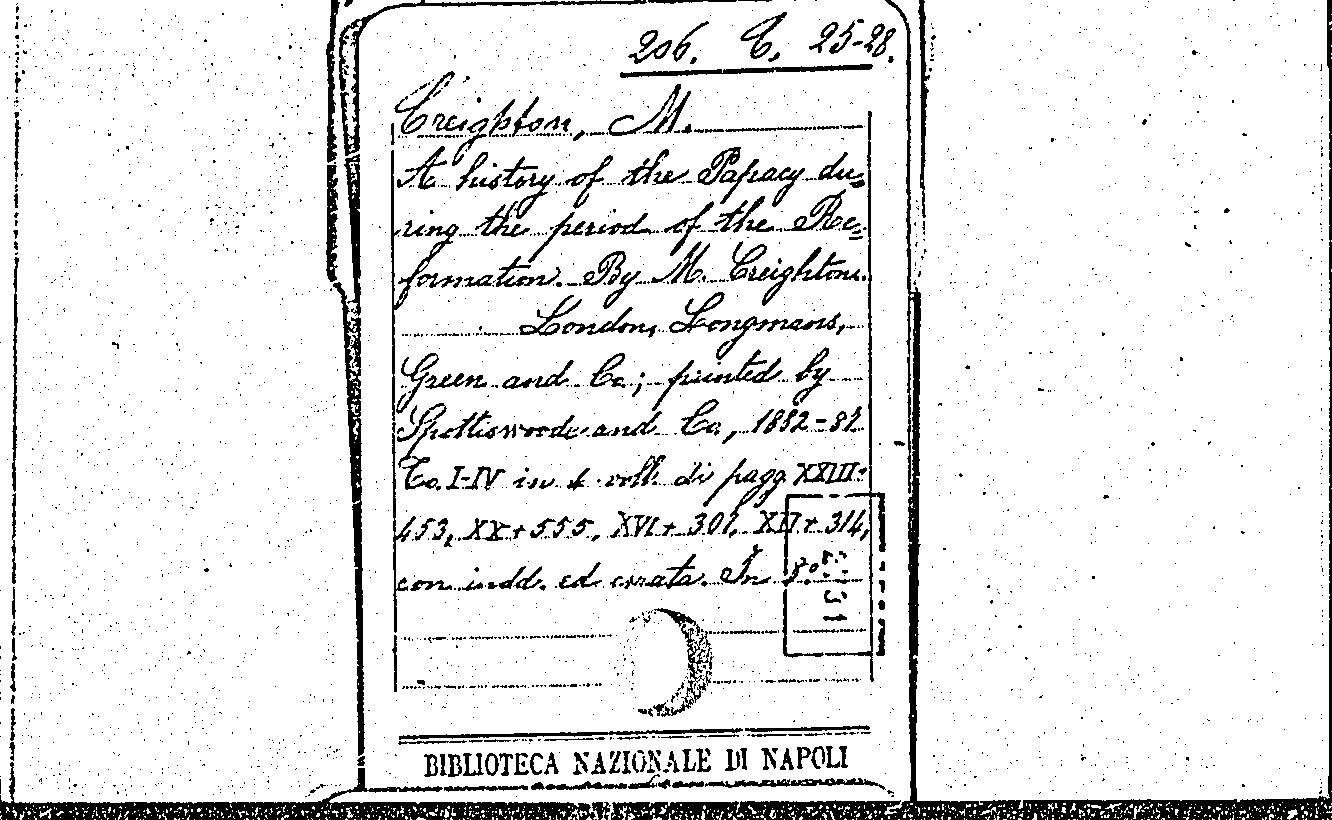 206. C. 25-28.
Creighton, M.
A history of the Papacy du=
ring the period of the Re=
formation. By M. Creighton.
London, Longmans,
Green and Co; printed by
Spottiswoode and Co, 1882-87.
To. I-IV in 4 voll. di pagg XXIII-
453, XX+555, XVI+307, XII+314,
con indd. ed errata. In 8º.
BIBLIOTECA NAZIONALE DI NAPOLI